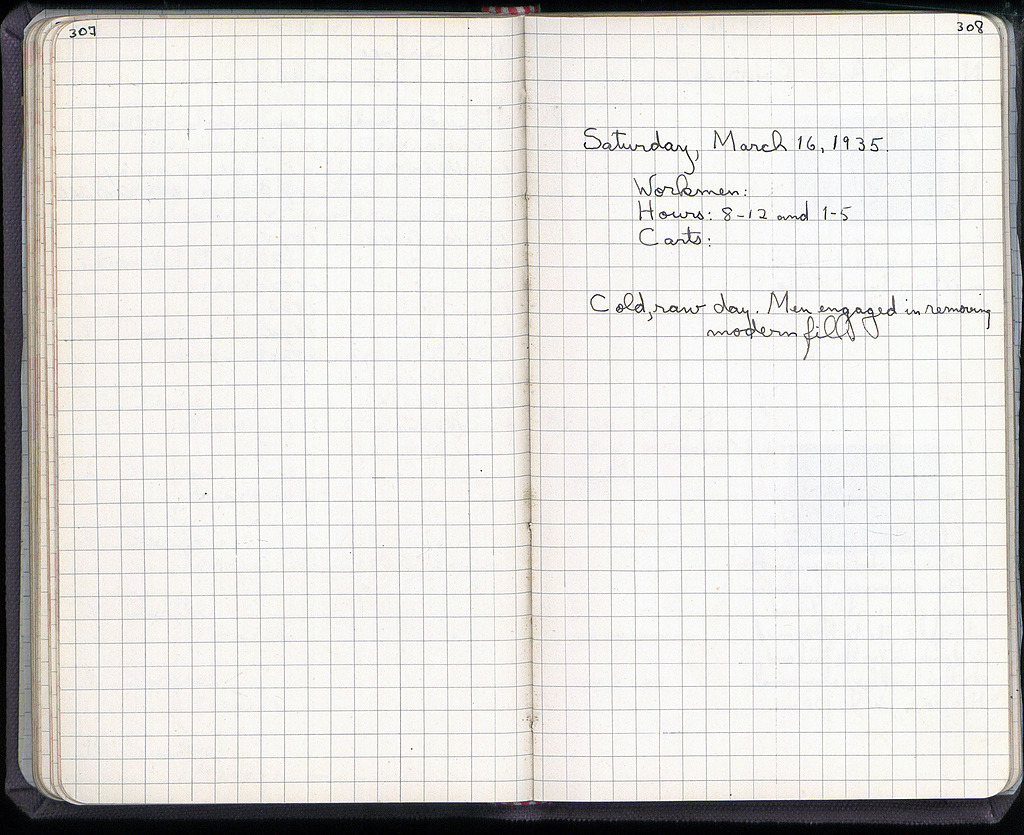 307
308
Saturday, March 16, 1935.
Workmen:
Hours: 8-12 and 1-5
Carts:
Cold, raw day. Men engaged in removing
modern fill.